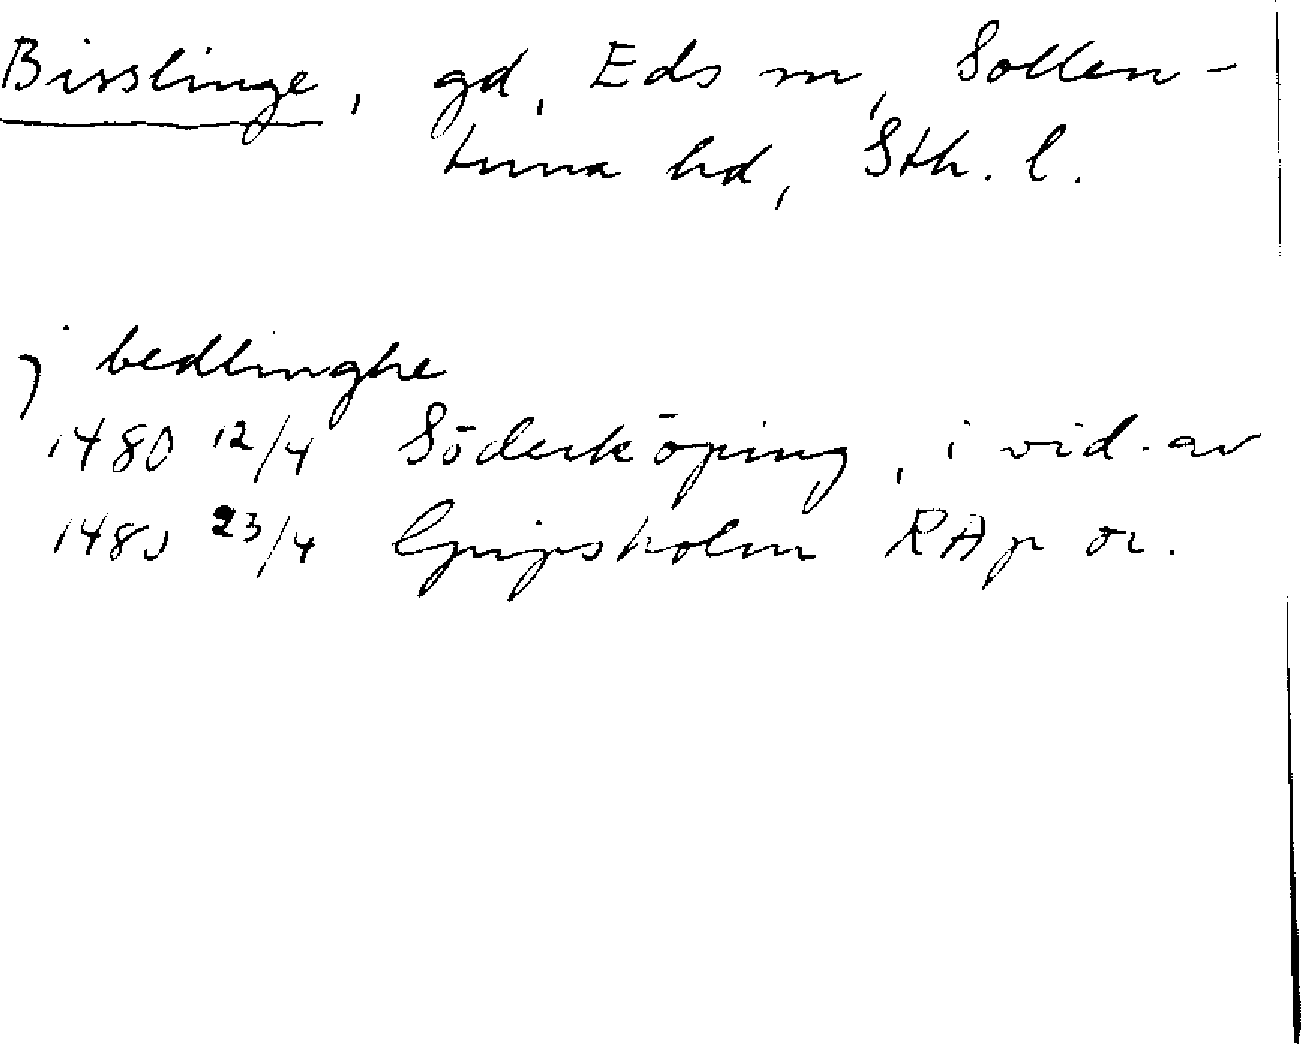 Bisslinge, gd, Eds sn, Sollen-
tuna hd, Sth. l.
j bedlinghe
1480 12/4 Söderköping, i vid. av
1480 23/4 Gripsholm RAp or.